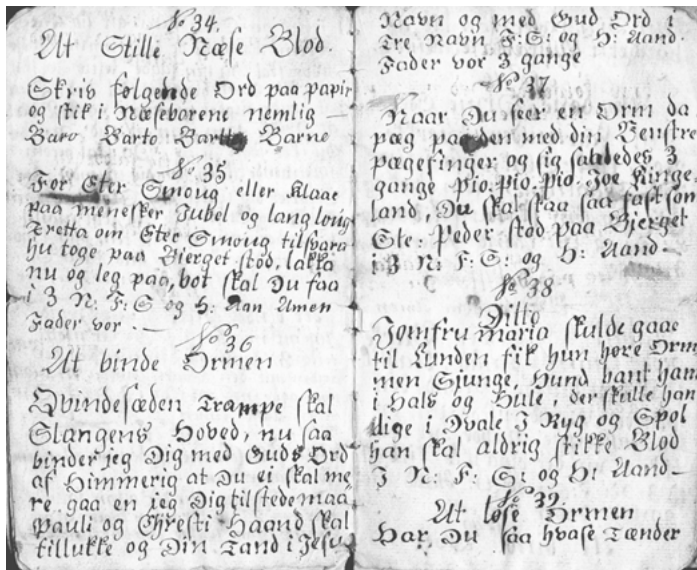 No 34.
At Stille Næse Blod.
Skriv følgende Ord paa papir
og stik i Næseborene nemlig
Buro Barto Bartto Barne
No 35
For Eter Smoug eller Klaae
paa menesker Jubel og lang
Tretta om Eter Smoug tilsvara
hu toge paa Bierget stod, lakta
nu og leg paa, bot skal Du faa
i 3 N: F: S og H: Aan Amen
Fader vor .—
No 36
At binde Ormen
Qvindesæden Trampe skal
Slangens Hoved, nu saa
binder jeg Dig med Guds Ord
af Himmerig at Du ei skal me
re gaa en jeg Dig tilstede maa
Pauli og Christi Haand skal
tillukke og Din Tand i Jesu
Navn og med Gud Ord i
Tre Navn F: S: og H: Aand.
Fader vor 3 gange
No 37
Naar Du seer en Orm da
pæg paa den med din Venstre
pægefinger og sig saaledes 3
gange pio. pio. pio. Joe Ringe.
land, Du skal staa saa fast som
Ste: Peder stod paa Bjerget
i 3 N: F: S: og H: Aand—
No 38
Ditto
Jomfru maria skulde gaae
til Lunden fik hun høre Orm
men Sjunge, Hund bant han
i Hals og Hule, der skulle han
lige i Dvale I Ryg og Spol
han skal aldrig stikke Blod
I N: F: S: og H: Aand—
No 39.
At løse Ormen
Har Du saa hvase Tænder